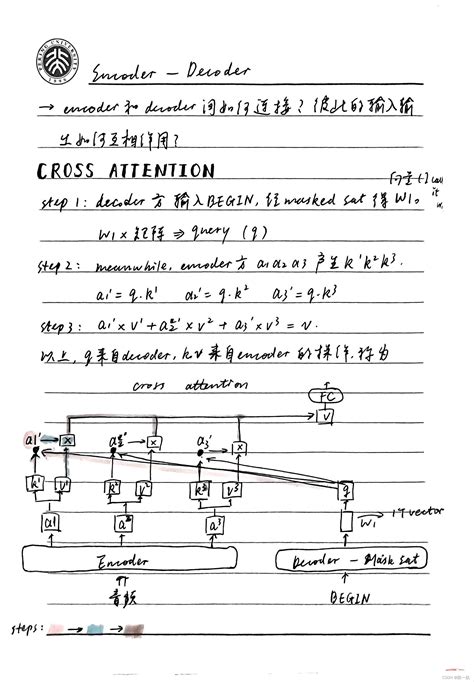 PEKING UNIVERSITY
1898
Encoder — Decoder
→ encoder 和 decoder 间如何连接？彼此的输入输
出如何互相作用？
CROSS ATTENTION
向量(1) call it w1
step 1: decoder 方 输入BEGIN, 经masked sat 得 W1。
W1 × 矩阵 ⇒ query (q)
step 2: meanwhile, encoder 方 a1 a2 a3 产生 k¹ k² k³.
a1' = q·k¹ a2' = q·k² a3' = q·k³
step 3: a1' × v¹ + a2' × v² + a3' × v³ = v.
以上, q来自decoder, k v 来自encoder 的操作, 称为
cross attention
FC
v
a1' x a2' x a3' x
k¹ v¹ k² v² k³ v³ q
a¹ a² a³ W1 → 1个vector
Encoder Decoder — Mask sat
音频 BEGIN
steps: → →